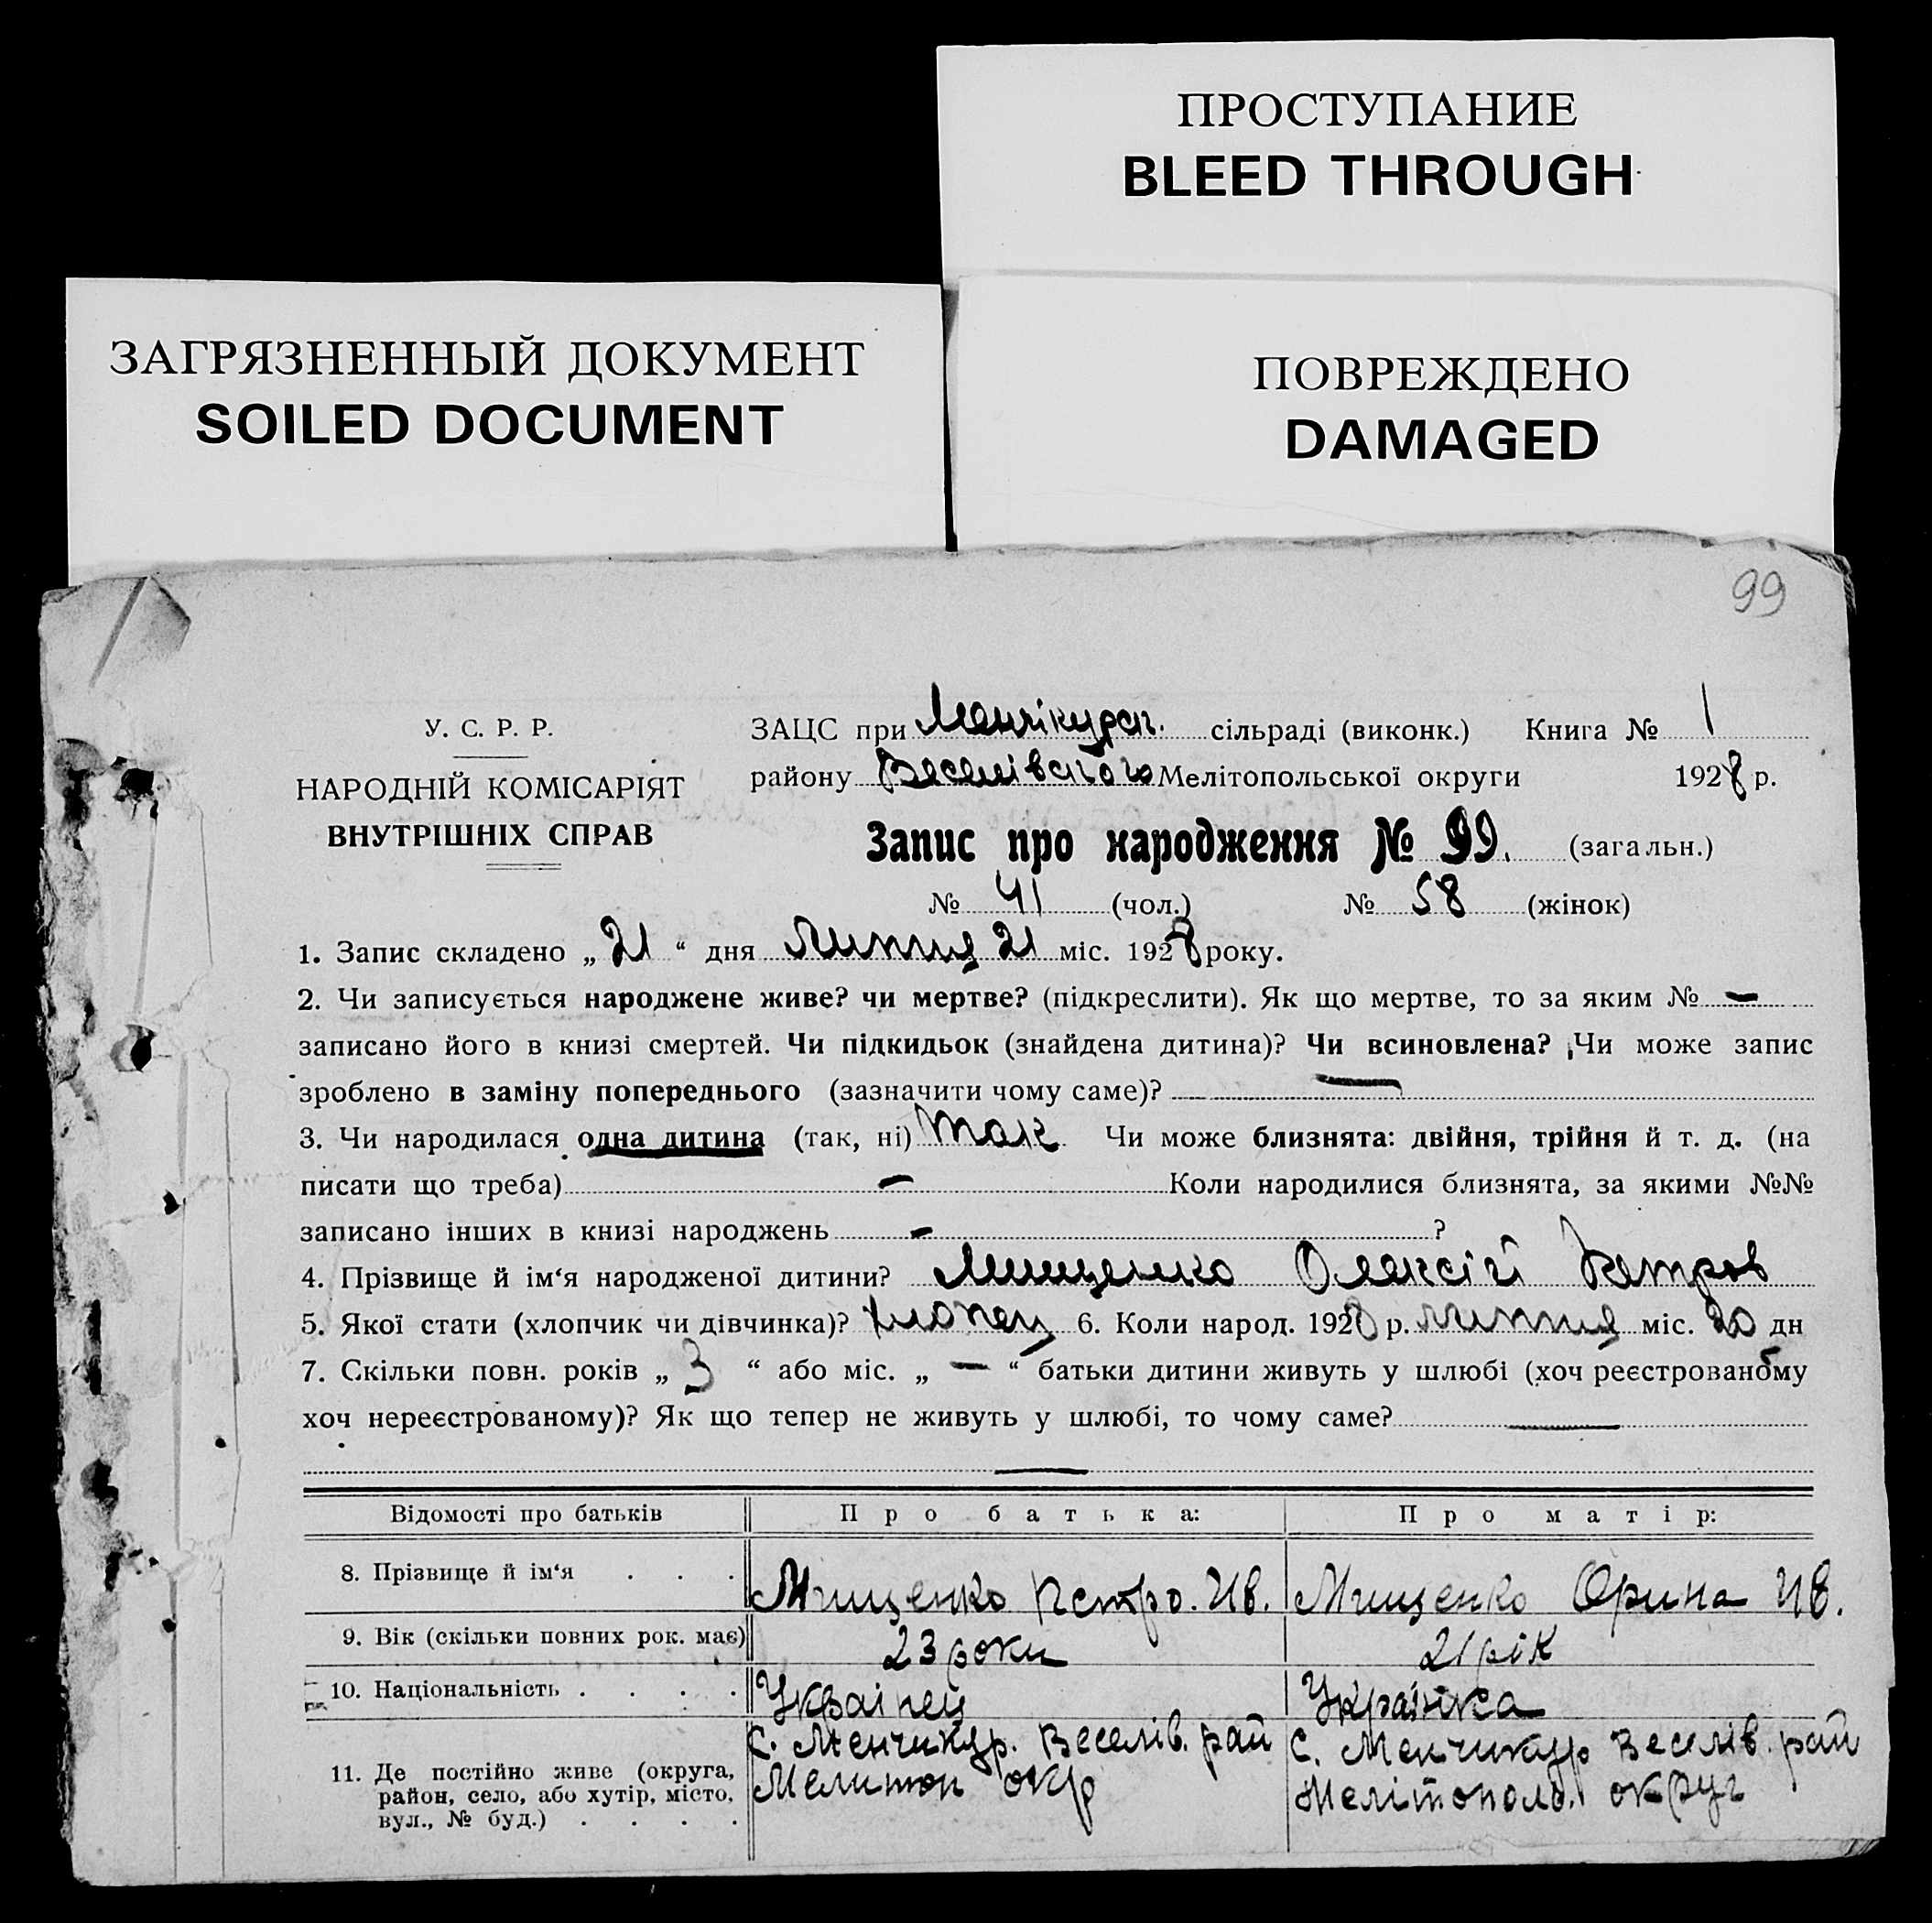 ПРОСТУПАНИЕ
BLEED THROUGH
ЗАГРЯЗНЕННЫЙ ДОКУМЕНТ
SOILED DOCUMENT
ПОВРЕЖДЕНО
DAMAGED
99
У. С. Р. Р.
НАРОДНІЙ КОМІСАРІЯТ
ВНУТРІШНІХ СПРАВ
ЗАЦС при Менчікурск. сільраді (виконк.) Книга № 1
району Веселівського Мелітопольської округи 1928 р.
Запис про народження № 99. (загальн.)
№ 41 (чол.) № 58 (жінок)
1. Запис складено „ 21 “ дня Липня 21 міс. 1928 року.
2. Чи записується народжене живе? чи мертве? (підкреслити). Як що мертве, то за яким № —
записано його в книзі смертей. Чи підкидьок (знайдена дитина)? Чи всиновлена? Чи може запис
зроблено в заміну попереднього (зазначити чому саме)? —
3. Чи народилася одна дитина (так, ні) так Чи може близнята: двійня, трійня й т. д. (на
писати що треба) — Коли народилися близнята, за якими №№
записано інших в книзі народжень — ?
4. Прізвище й ім‘я народженої дитини? Мищенко Олексій Петров
5. Якої стати (хлопчик чи дівчинка)? хлопец 6. Коли народ. 1928 р. липня міс. 20 дн
7. Скільки повн. років „ 3 “ або міс. „ — “ батьки дитини живуть у шлюбі (хоч реєстрованому
хоч нереєстрованому)? Як що тепер не живуть у шлюбі, то чому саме? —
—
Відомості про батьків Про батька: Про матір:
8. Прізвище й ім‘я . . . Мищенко Петро. Ив. Мищенко Орина Ив.
9. Вік (скільки повних рок. має) 23 роки 21 рік
10. Національність . . . . Украінец Українка
11. Де постійно живе (округа, район, село, або хутір, місто, вул., № буд.) . . . .
с. Менчикур. Веселів. рай
Мелитоп окр
с. Менчикур Веселів. рай
Мелітополь. округ